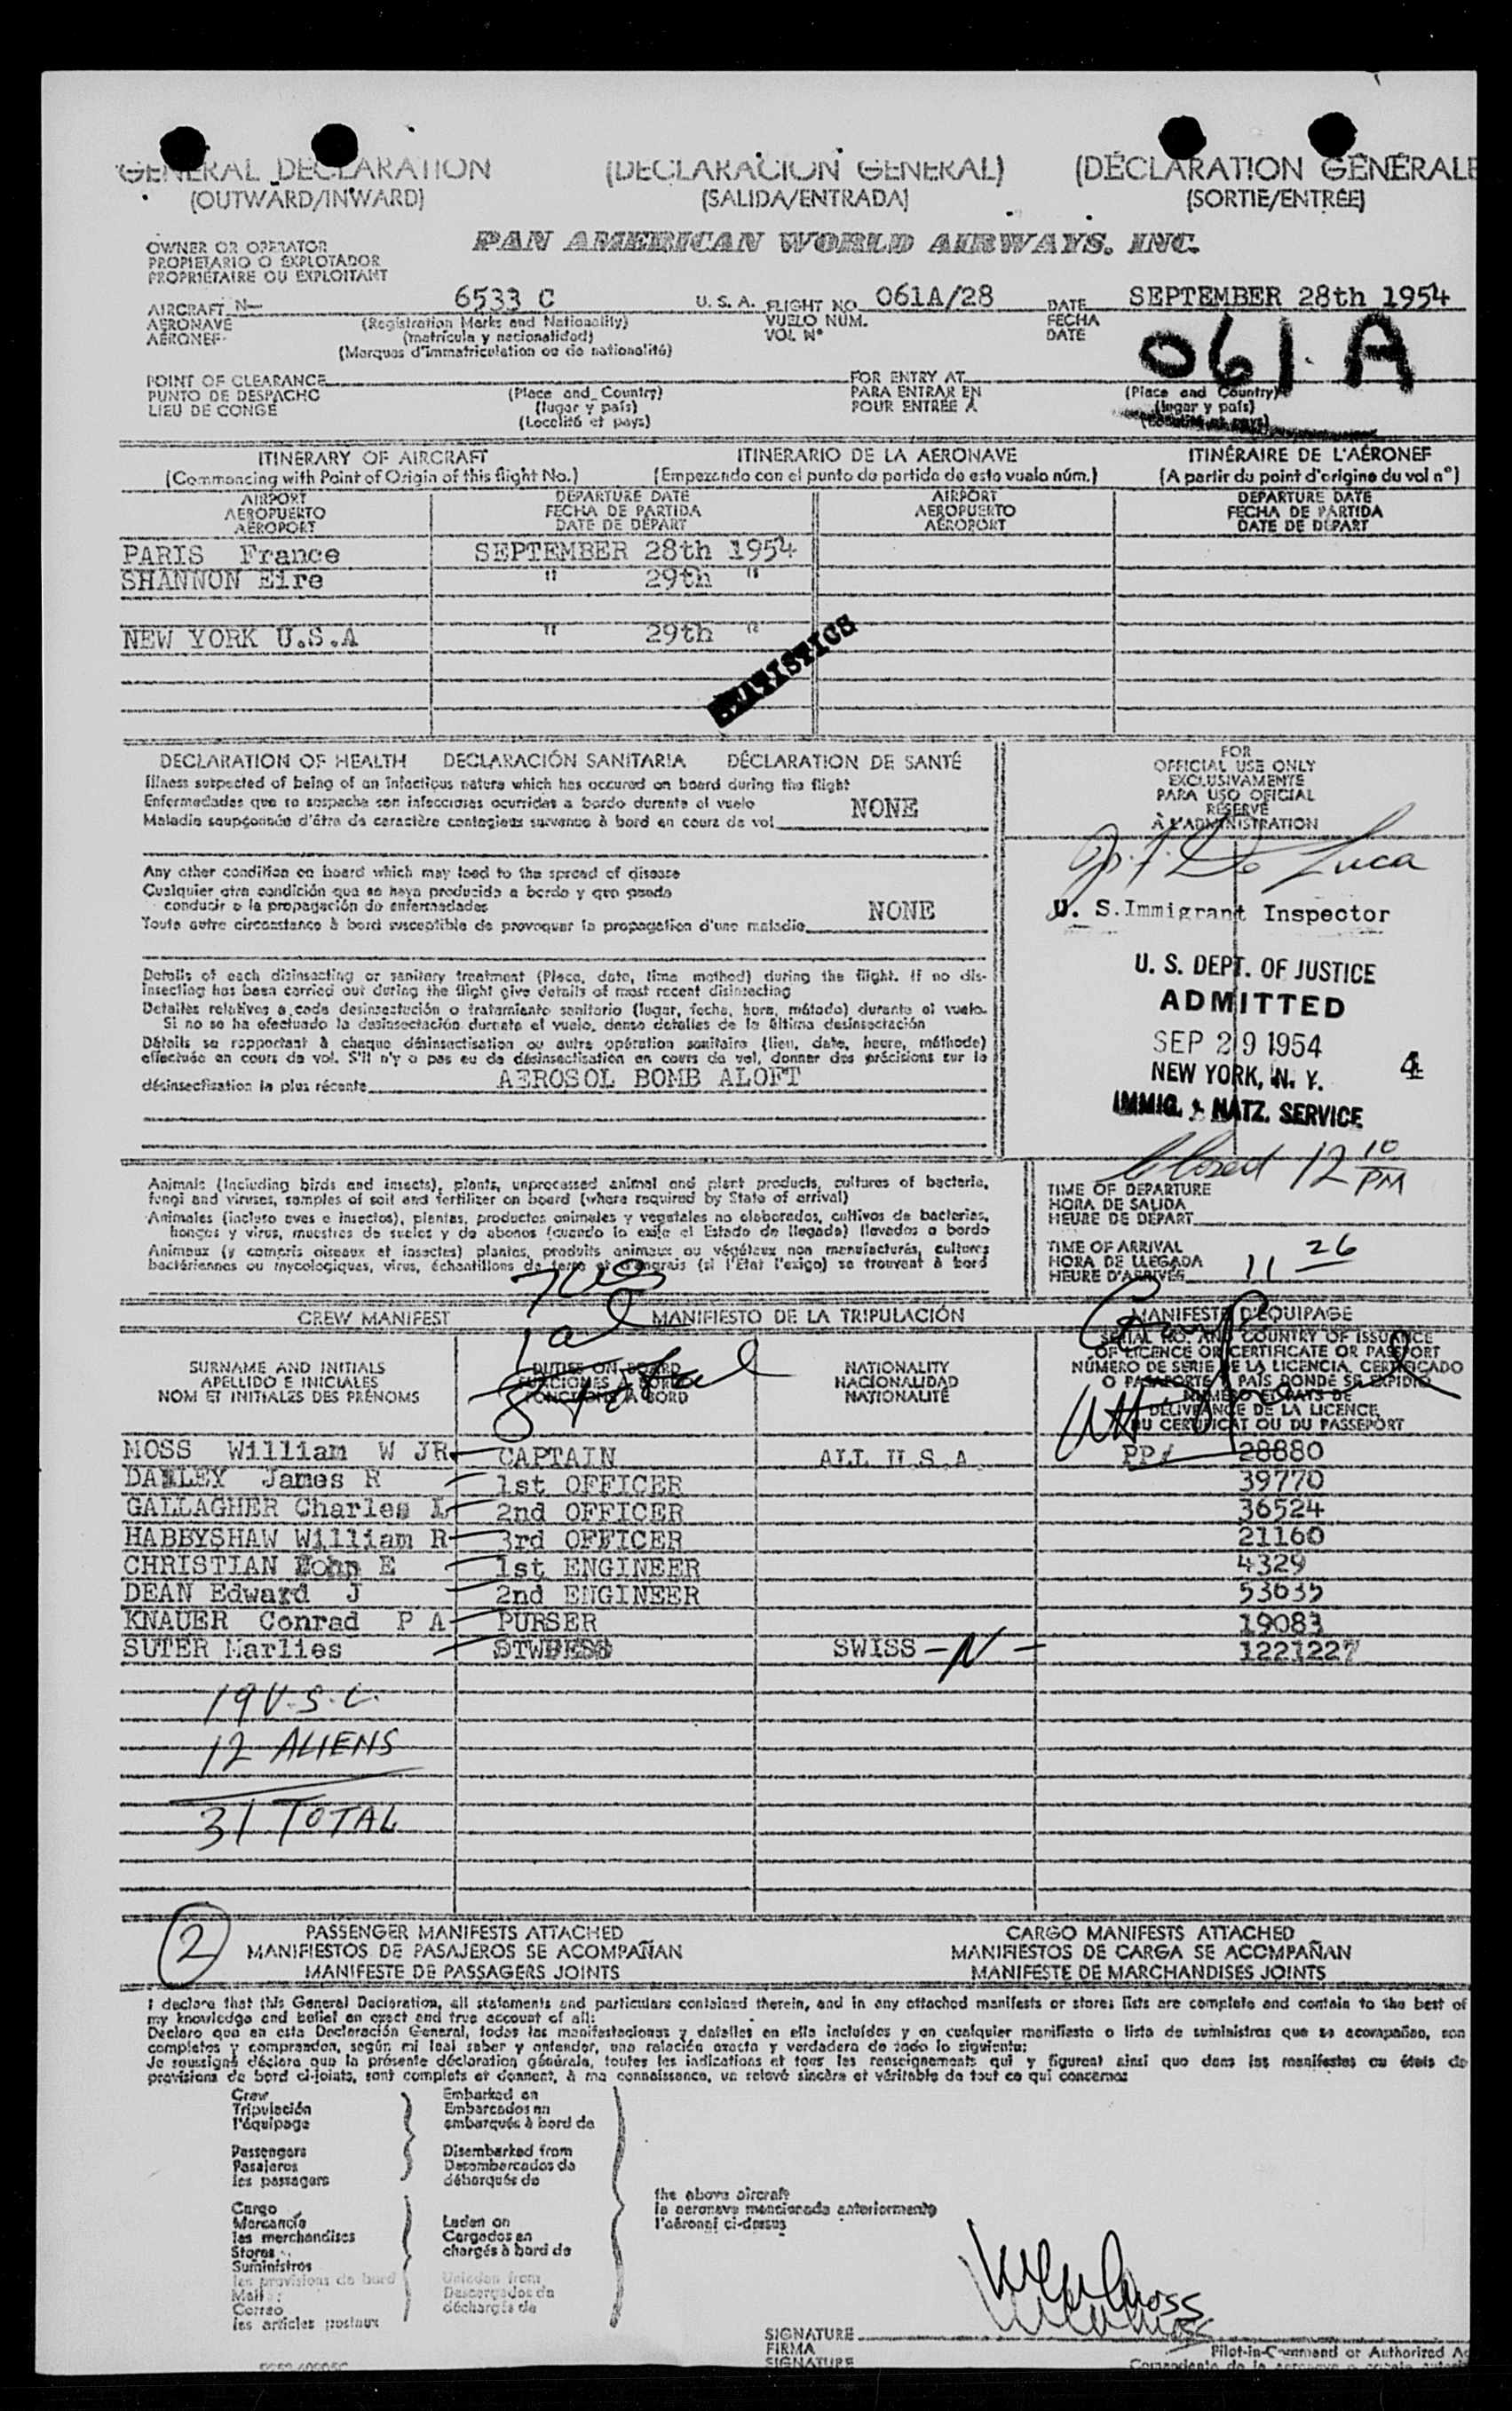 GENERAL DECLARATION (DECLARACION GENERAL) (DÉCLARATION GÉNÉRALE
(OUTWARD/INWARD) (SALIDA/ENTRADA) (SORTIE/ENTRÉE)
OWNER OR OPERATOR PAN AMERICAN WORLD AIRWAYS, INC.
PROPIETARIO O EXPLOTADOR
PROPRIÉTAIRE OU EXPLOITANT
AIRCRAFT N— 6533 C U. S. A. FLIGHT NO. 061A/28 DATE SEPTEMBER 28th 1954
AERONAVE (Registration Marks and Nationality) VUELO NUM. FECHA
AÉRONEF (matrícula y nacionalidad) VOL N° DATE
(Marques d'immatriculation ou de nationalité)
061 A
POINT OF CLEARANCE FOR ENTRY AT
PUNTO DE DESPACHO (Place and Country) PARA ENTRAR EN (Place and Country)
LIEU DE CONGÉ (lugar y país) POUR ENTRÉE À (lugar y país)
(Localité et pays)
ITINERARY OF AIRCRAFT ITINERARIO DE LA AERONAVE ITINÉRAIRE DE L'AÉRONEF
(Commencing with Point of Origin of this flight No.) (Empezando con el punto de partida de este vuelo núm.) (A partir du point d'origine du vol n°)
AIRPORT DEPARTURE DATE AIRPORT DEPARTURE DATE
AEROPUERTO FECHA DE PARTIDA AEROPUERTO FECHA DE PARTIDA
AÉROPORT DATE DE DÉPART AÉROPORT DATE DE DÉPART
PARIS France SEPTEMBER 28th 1954
SHANNON Eire " 29th "
NEW YORK U.S.A " 29th "
STATISTICS
DECLARATION OF HEALTH DECLARACIÓN SANITARIA DÉCLARATION DE SANTÉ
Illness suspected of being of an infectious nature which has occured on board during the flight
Enfermedades que se sospecha son infecciosas ocurridas a bordo durante el vuelo NONE
Maladie soupçonnée d'être de caractère contagieux survenue à bord en cours de vol
Any other condition on board which may lead to the spread of disease
Cualquier otra condición que se haya producido a bordo y que pueda
conducir a la propagación de enfermedades NONE
Toute autre circonstance à bord susceptible de provoquer la propagation d'une maladie
Details of each disinsecting or sanitary treatment (Place, date, time method) during the flight. If no dis-
insecting has been carried out during the flight give details of most recent disinsecting
Detalles relativos a cada desinsectación o tratamiento sanitario (lugar, fecha, hora, método) durante el vuelo.
Si no se ha efectuado la desinsectación durante el vuelo, dense detalles de la última desinsectación
Détails se rapportant à chaque désinsectisation ou autre opération sanitaire (lieu, date, heure, méthode)
effectuée en cours de vol. S'il n'y a pas eu de désinsectisation en cours de vol, donner des précisions sur la
désinsectisation la plus récente AEROSOL BOMB ALOFT
FOR
OFFICIAL USE ONLY
EXCLUSIVAMENTE
PARA USO OFICIAL
RÉSERVÉ
À L'ADMINISTRATION
De Luca
U. S. Immigrant Inspector
U. S. DEPT. OF JUSTICE
ADMITTED
SEP 29 1954 4
NEW YORK, N. Y.
IMMIG. & NATZ. SERVICE
Closed 12 10 PM
Animals (Including birds and insects), plants, unprocessed animal and plant products, cultures of bacteria,
fungi and viruses, samples of soil and fertilizer on board (where required by State of arrival)
Animales (incluso aves e insectos), plantas, productos animales y vegetales no elaborados, cultivos de bacterias,
hongos y virus, muestras de suelos y de abonos (cuando lo exije el Estado de llegada) llevados a bordo
Animaux (y compris oiseaux et insectes) plantes, produits animaux ou végétaux non manufacturés, cultures
bactériennes ou mycologiques, virus, échantillons de terre et d'engrais (si l'État l'exige) se trouvant à bord
TIME OF DEPARTURE
HORA DE SALIDA
HEURE DE DÉPART
TIME OF ARRIVAL
HORA DE LLEGADA 11 26
HEURE D'ARRIVÉE
CREW MANIFEST MANIFIESTO DE LA TRIPULACIÓN MANIFESTE D'ÉQUIPAGE
8 total
SURNAME AND INITIALS DUTIES ON BOARD NATIONALITY SERIAL NO. AND COUNTRY OF ISSUANCE
APELLIDO E INICIALES FUNCIONES A BORDO NACIONALIDAD OF LICENCE OR CERTIFICATE OR PASSPORT
NOM ET INITIALES DES PRÉNOMS FONCTIONS À BORD NATIONALITÉ NÚMERO DE SERIE DE LA LICENCIA, CERTIFICADO
O PASAPORTE Y PAÍS DONDE SE EXPIDIO
NUMÉRO ET PAYS DE
DÉLIVRANCE DE LA LICENCE,
DU CERTIFICAT OU DU PASSEPORT
MOSS William W JR CAPTAIN ALL U.S.A. PP# 28880
DAILEY James R 1st OFFICER 39770
GALLAGHER Charles L 2nd OFFICER 36524
HABBYSHAW William R 3rd OFFICER 21160
CHRISTIAN John E 1st ENGINEER 4329
DEAN Edward J 2nd ENGINEER 53635
KNAUER Conrad P A PURSER 19083
SUTER Marlies STWDESS SWISS -N- 1221227
19 U.S.C.
12 ALIENS
31 TOTAL
2 PASSENGER MANIFESTS ATTACHED CARGO MANIFESTS ATTACHED
MANIFIESTOS DE PASAJEROS SE ACOMPAÑAN MANIFIESTOS DE CARGA SE ACOMPAÑAN
MANIFESTE DE PASSAGERS JOINTS MANIFESTE DE MARCHANDISES JOINTS
I declare that this General Declaration, all statements and particulars contained therein, and in any attached manifests or stores lists are complete and contain to the best of
my knowledge and belief an exact and true account of all:
Declaro que en esta Declaración General, todas las manifestaciones y detalles en ella incluídos y en cualquier manifiesto o lista de suministros que se acompañan, son
completos y comprenden, según mi leal saber y entender, una relación exacta y verdadera de todo lo siguiente:
Je soussigné déclare que la présente déclaration générale, toutes les indications et tous les renseignements qui y figurent ainsi que dans les manifestes ou états de
provisions de bord ci-joints, sont complets et donnent, à ma connaissance, un relevé sincère et véritable de tout ce qui concerne:
Crew Embarked on
Tripulación Embarcados en
l'équipage embarqués à bord de
Passengers Disembarked from
Pasajeros Desembarcados de
les passagers débarqués de
the above aircraft
Cargo la aeronave mencionada anteriormente
Mercancía Laden on l'aéronef ci-dessus
les merchandises Cargados en
Stores chargés à bord de
Suministros
les provisions de bord Unladen from
Mail Descargados de
Correo déchargés de
les articles postaux
SIGNATURE
FIRMA Pilot-in-Command or Authorized
SIGNATURE